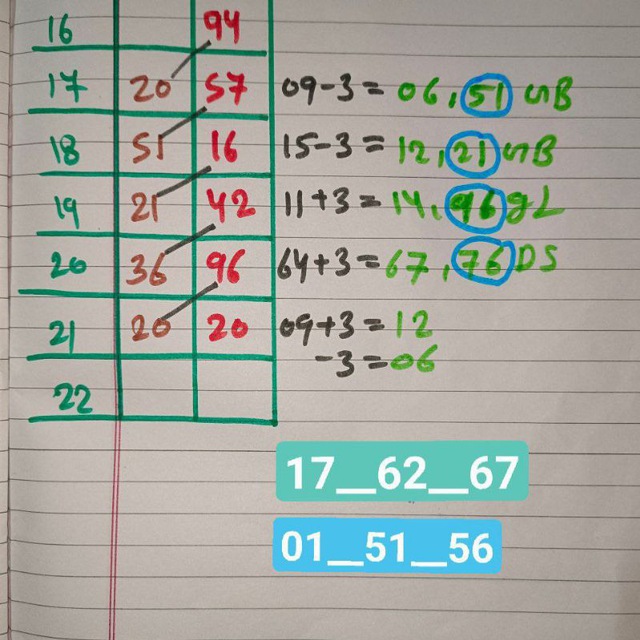 16 94
17 20 57 09-3=06,51 GB
18 51 16 15-3=12,21 GB
19 21 42 11+3=14,96 gL
20 36 96 64+3=67,76 DS
21 20 20 09+3=12
-3=06
22
17__62__67
01__51__56